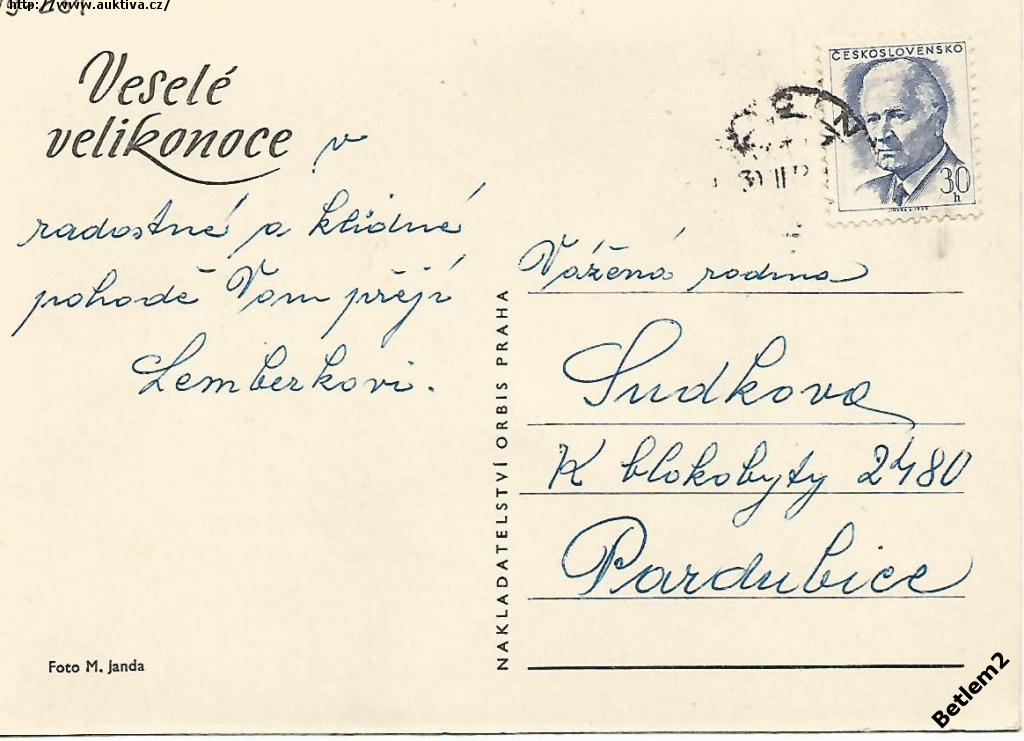 http://www.auktiva.cz/
Veselé
velikonoce v
radostné a klidné
pohodě Vám přejí
Lemberkovi.
ČESKOSLOVENSKO
30
h
Vážená rodina
Sudkova
K blokobyty 2480
Pardubice
NAKLADATELSTVÍ ORBIS PRAHA
Foto M. Janda
Betlem2